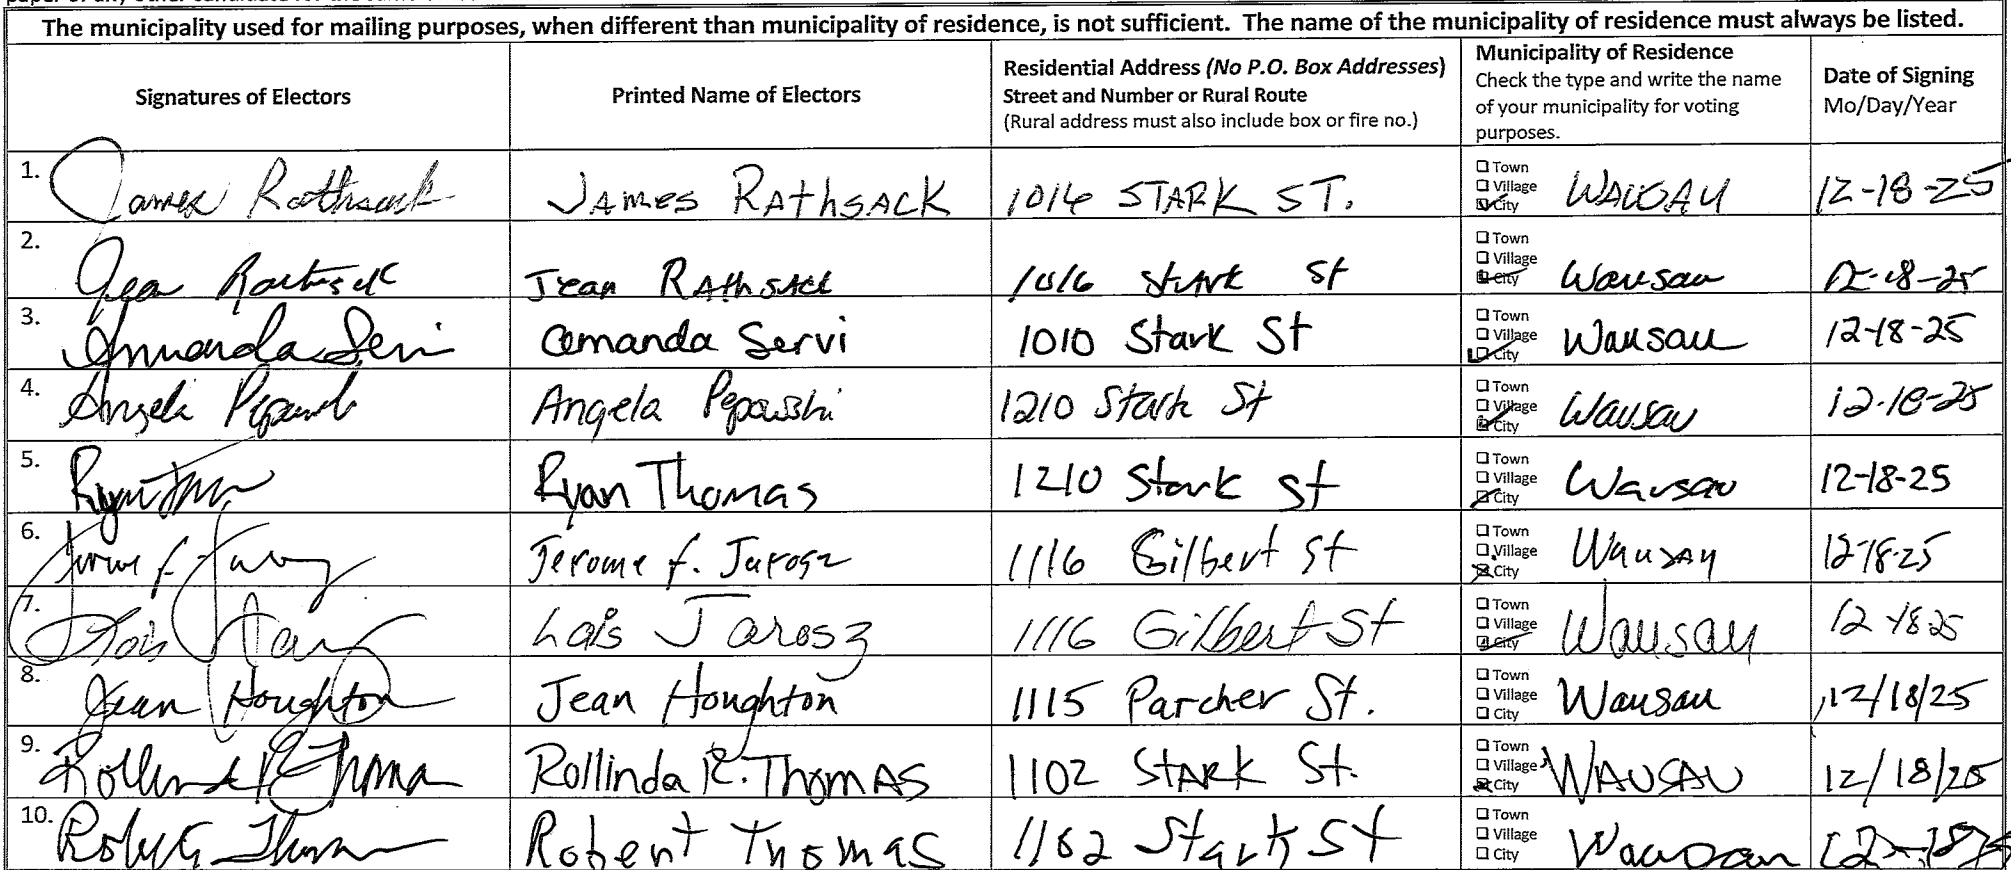 The municipality used for mailing purposes, when different than municipality of residence, is not sufficient. The name of the municipality of residence must always be listed.
Signatures of Electors
Printed Name of Electors
Residential Address (No P.O. Box Addresses)
Street and Number or Rural Route
(Rural address must also include box or fire no.)
Municipality of Residence
Check the type and write the name
of your municipality for voting
purposes.
Date of Signing
Mo/Day/Year
1. James Rathsack JAMES RATHSACK 1016 STARK ST. Town Village City WAUSAU 12-18-25
2. Jean Rathsack Jean RAthsack 1016 Stark St Town Village City Wausau 12-18-25
3. Amanda Servi amanda Servi 1010 Stark St Town Village City Wausau 12-18-25
4. Angela Angela 1210 Stark St Town Village City Wausau 12-18-25
5. Ryan Thomas 1210 Stark St Town Village City Wausau 12-18-25
6. Jerome f. Jarosz 1116 Gilbert St Town Village City Wausau 12-18-25
7. Lois Jarosz 1116 Gilbert St Town Village City Wausau 12-18-25
8. Jean Houghton Jean Houghton 1115 Parcher St. Town Village City Wausau 12/18/25
9. Rollinda R. Thomas Rollinda R. Thomas 1102 STARK St. Town Village City WAUSAU 12/18/25
10. Robert Thomas Stark St Town Village City Wausau